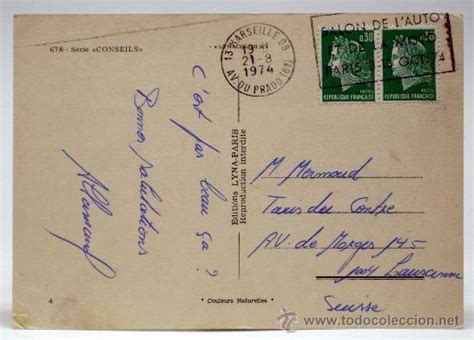 678 - Série «CONSEILS»
C'est pas beau ça ?
Bonnes salutations
Allamand
4
Editions LYNA-PARIS
Reproduction interdite
" Couleurs Naturelles "
13 MARSEILLE 08
21-8
1974
AV. DU PRADO (B1)
SALON DE L'AUTO
ET DE LA
PARIS
0,30
REPUBLIQUE FRANÇAISE
REPUBLIQUE FRANÇAISE
M Mermoud
Taxis du Centre
AV. de Morges 145
1004 Lausanne
Suisse
© www.todocoleccion.net